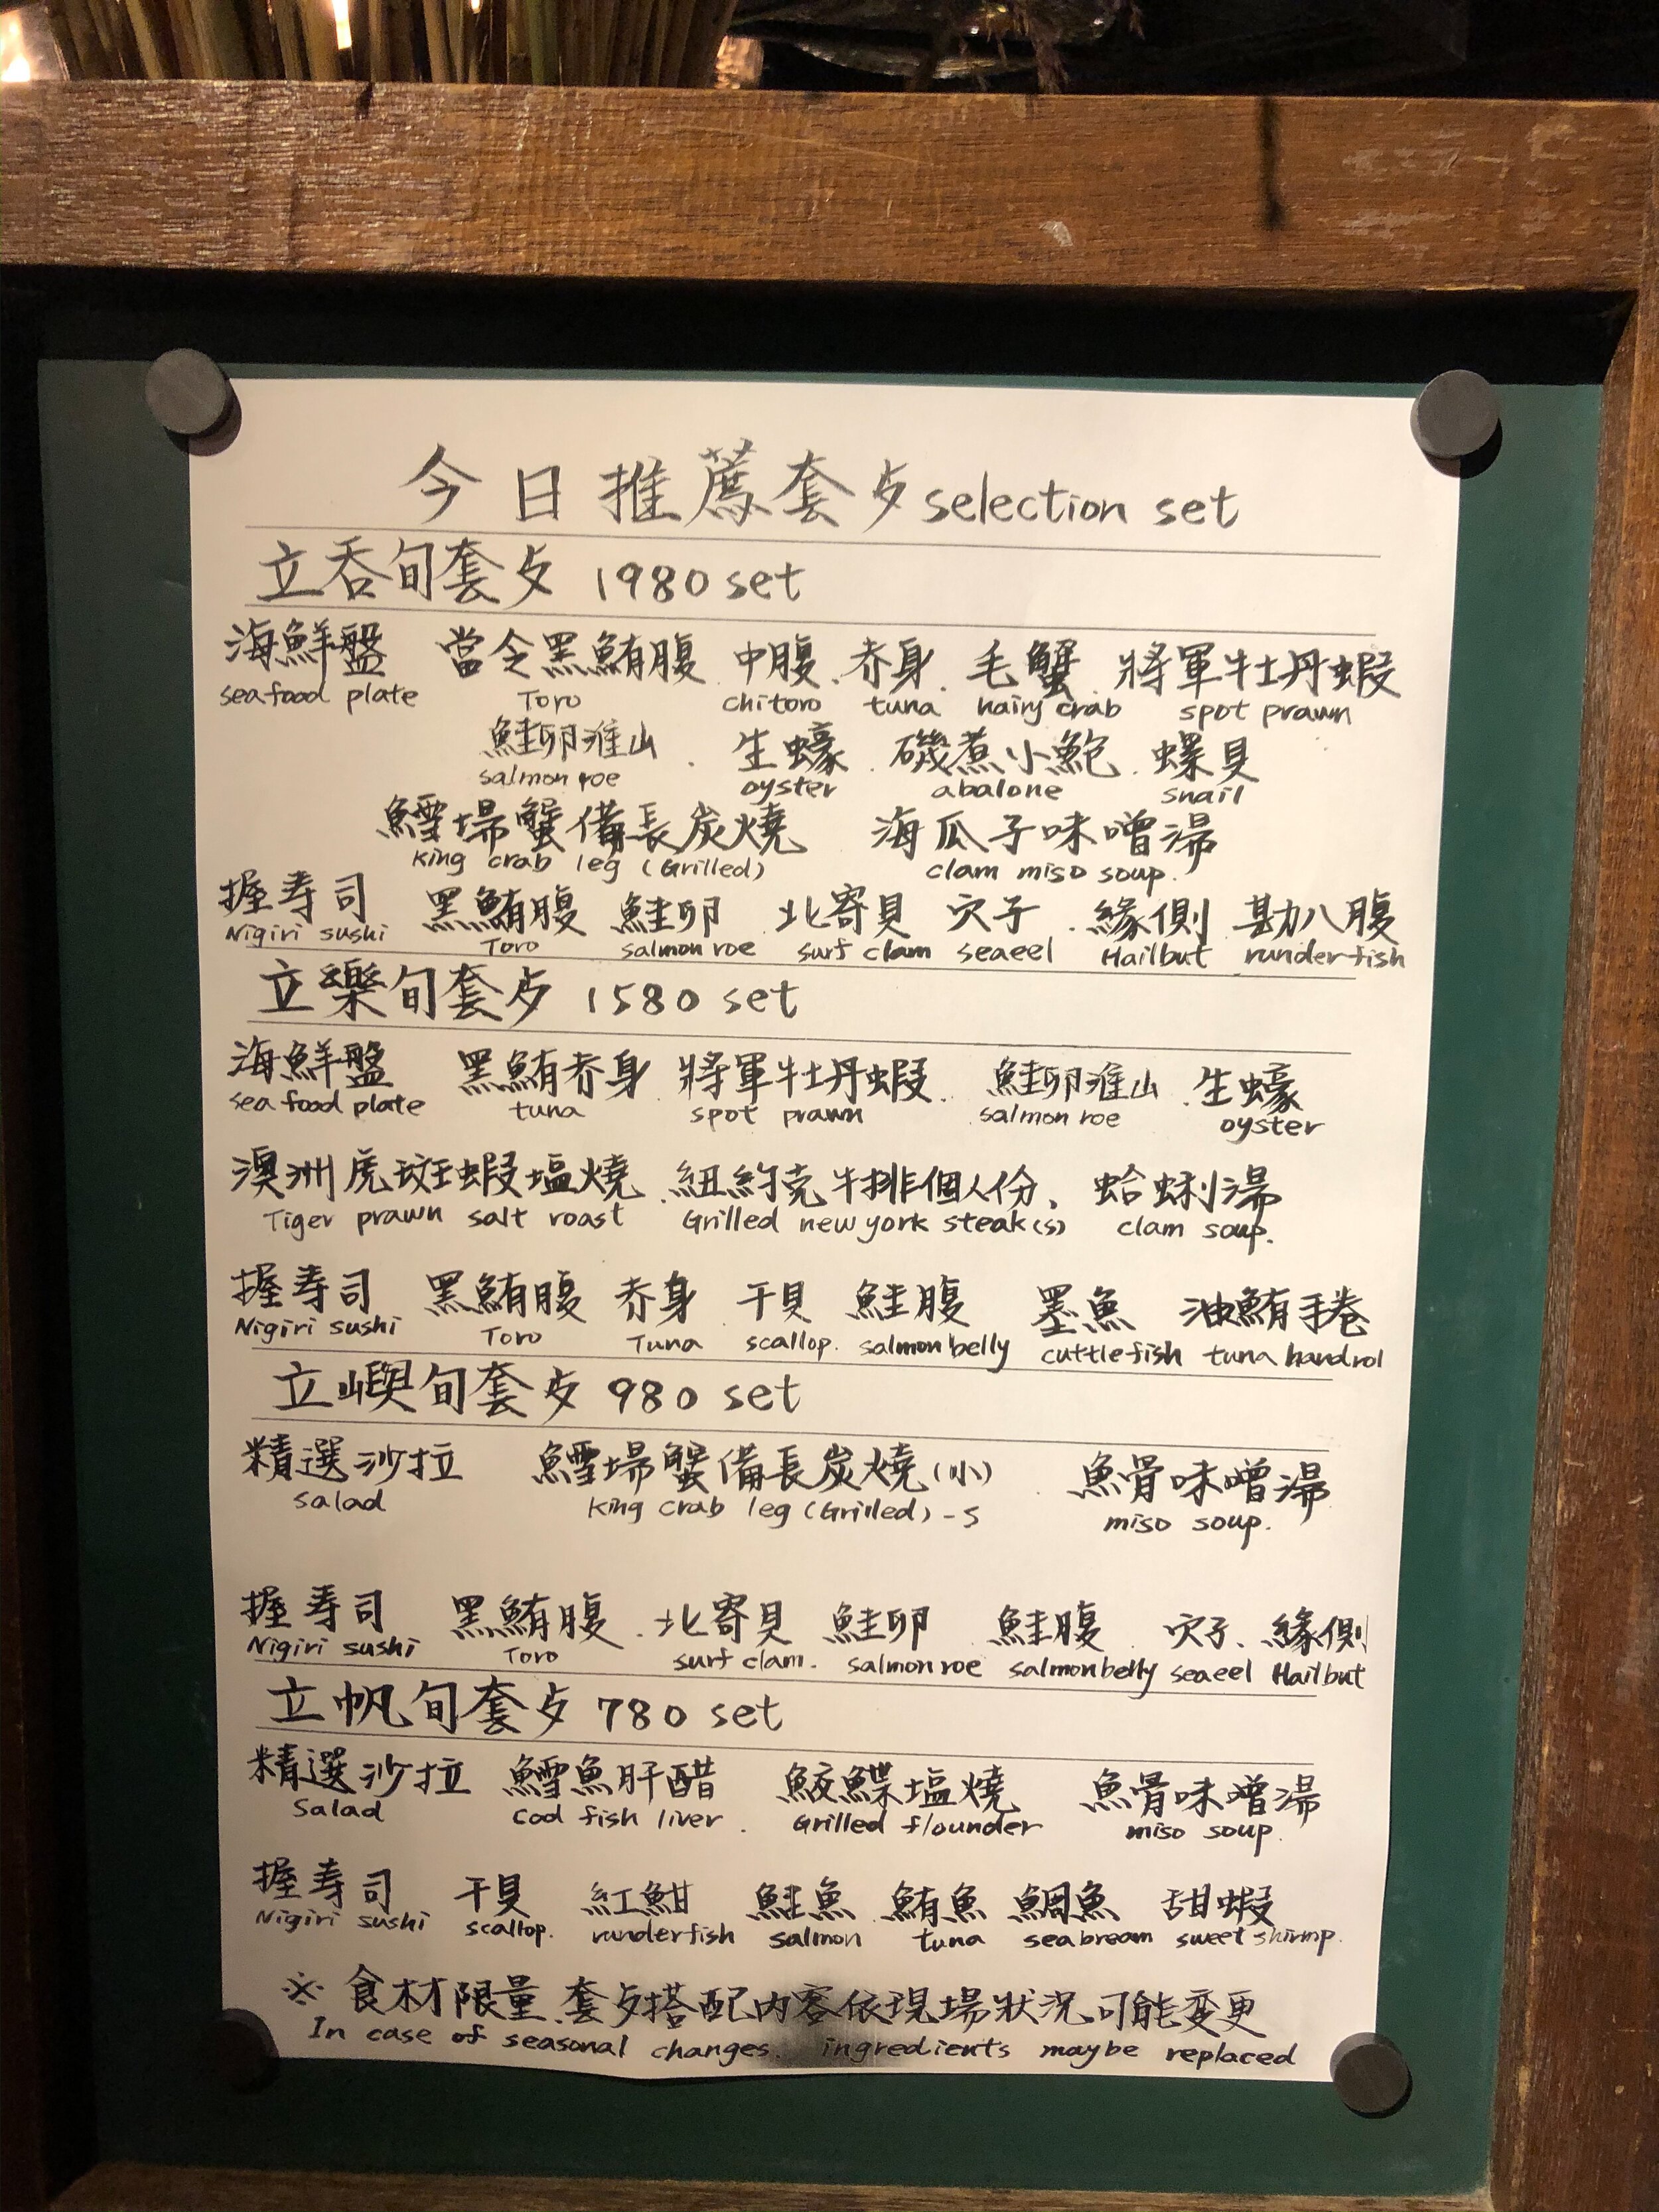 今日推薦套歺 selection set
立吞旬套歺 1980 set
海鮮盤 當令黑鮪腹 中腹. 赤身. 毛蟹. 將軍牡丹蝦
seafood plate Toro chitoro tuna hairy crab spot prawn
鮭卵淮山 . 生蠔 . 磯煮小鮑 . 螺貝
salmon roe oyster abalone snail
鱈場蟹備長炭燒 海瓜子味噌湯
king crab leg (Grilled) clam miso soup.
握寿司 黑鮪腹 鮭卵 北寄貝 穴子 . 緣側 勘八腹
Nigiri sushi Toro salmon roe surf clam seaeel Hailbut runderfish
立樂旬套歺 1580 set
海鮮盤 黑鮪赤身 將軍牡丹蝦. 鮭卵淮山 . 生蠔
sea food plate tuna spot prawn salmon roe oyster
澳洲虎斑蝦塩燒 . 紐約克牛排個人份、 蛤蜊湯
Tiger prawn salt roast Grilled new york steak(s) clam soup.
握寿司 黑鮪腹 赤身 干貝 鮭腹 墨魚 油鮪手捲
Nigiri sushi Toro Tuna scallop. salmon belly cuttlefish tuna handrol
立嶼旬套歺 980 set
精選沙拉 鱈場蟹備長炭燒(小) . 魚骨味噌湯
salad king crab leg (Grilled) - S miso soup.
握寿司 黑鮪腹 . 北寄貝 鮭卵 鮭腹 . 穴子、 緣側
Nigiri sushi Toro surf clam. salmon roe salmon belly seaeel Hailbut
立帆旬套歺 780 set
精選沙拉 鱈魚肝醋 鮫鰈塩燒 魚骨味噌湯
Salad cod fish liver . Grilled flounder miso soup.
握寿司 干貝 紅魽 鮭魚 鮪魚 鯛魚 甜蝦
Nigiri sushi scallop. runderfish salmon tuna seabream sweet shirmp.
※ 食材限量、套歺搭配內容依現場狀況可能変更
In case of seasonal changes. ingredients maybe replaced